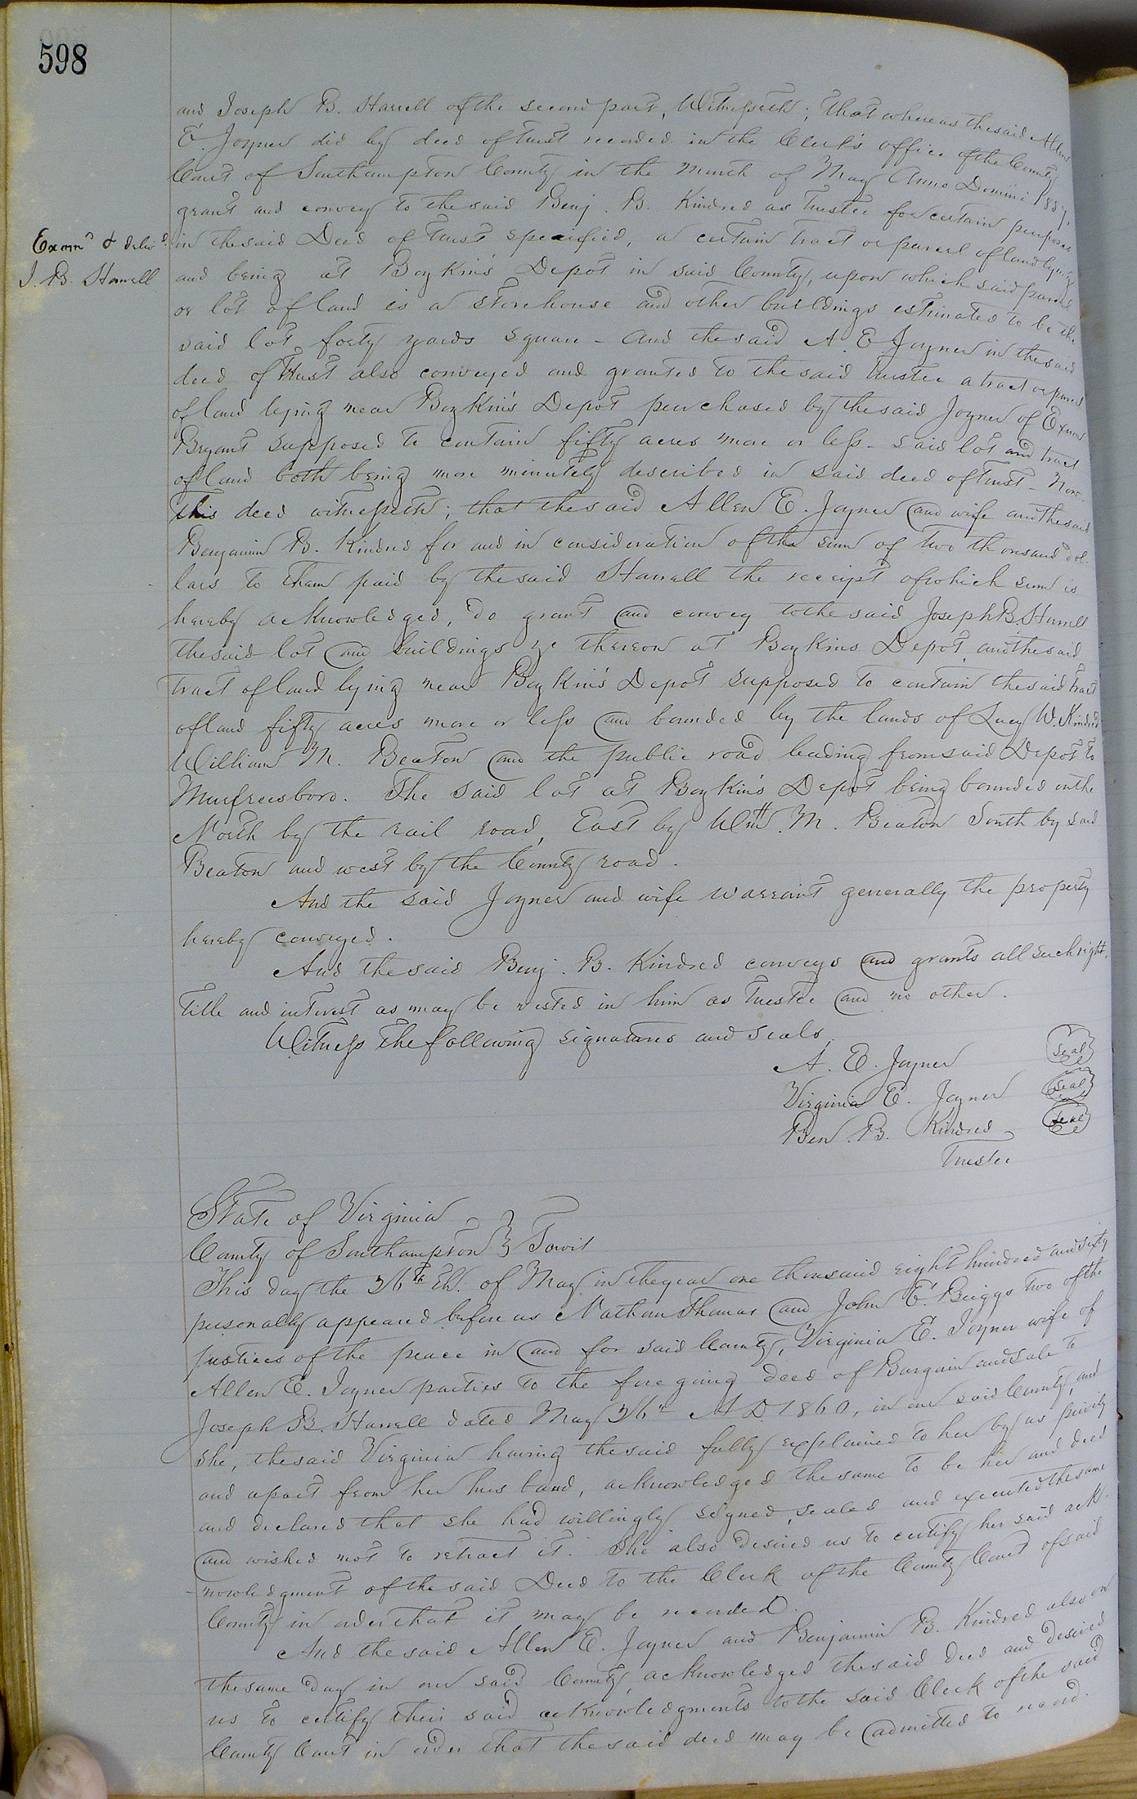 598
and Joseph B. Harrell of the second part, Witnesseth; that whereas the said Allen
E. Joyner did by deed of trust recorded in the Clerk's office of the County
Court of Southampton County in the month of May Anno Domini 1857,
grant and convey to the said Benj. B. Kindred as Trustee for certain purposes
Examd & deld in the said Deed of trust specified, a certain tract or parcel of land lying
J. B. Harrell and being at Boykin's Depot in said County, upon which said parcel
or lot of land is a storehouse and other buildings estimated to be the
said lot forty yards square - And the said A. E. Joyner in the said
deed of trust also conveyed and granted to the said trustee a tract or parcel
of land lying near Boykin's Depot purchased by the said Joyner of Exum
Bryant supposed to contain fifty acres more or less - said lot and tract
of land both being more minutely described in said deed of trust - Now
this deed witnesseth; that the said Allen E. Joyner and wife and the said
Benjamin B. Kindred for and in consideration of the sum of two thousand dol-
lars to them paid by the said Harrell the receipt of which sum is
hereby acknowledged, do grant and convey to the said Joseph B. Harrell
the said lot and buildings &c thereon at Boykins Depot and the said
tract of land lying near Boykin's Depot supposed to contain the said tract
of land fifty acres more or less and bounded by the lands of Lucy W. Kindred
William M. Beaton and the public road leading from said Depot to
Murfreesboro. The said lot at Boykin's Depot being bounded on the
North by the rail road, East by Wm. M. Beaton South by said
Beaton and west by the County road.
And the said Joyner and wife warrant generally the property
hereby conveyed.
And the said Benj. B. Kindred conveys and grants all such right,
title and interest as may be vested in him as Trustee and no other.
Witness the following signatures and seals
A. E. Joyner seal
Virginia E. Joyner seal
Ben. B. Kindred seal
Trustee
State of Virginia
County of Southampton } Towit
This day the 26th of May in the year one thousand eight hundred and sixty
personally appeared before us Nathan Thomas and John E. Briggs two of the
justices of the peace in and for said County, Virginia E. Joyner wife of
Allen E. Joyner parties to the foregoing deed of Bargain and sale to
Joseph B. Harrell dated May 26th A D 1860, in our said County, and
she, the said Virginia having the said fully explained to her by us privily
and apart from her husband, acknowledged the same to be her and deed
and declared that she had willingly signed, sealed and executed the same
and wished not to retract it. She also desired us to certify her said ack-
nowledgment of the said Deed to the Clerk of the County Court of said
County in order that it may be recorded.
And the said Allen E. Joyner and Benjamin B. Kindred also on
the same day in our said County, acknowledged the said deed and desired
us to certify their said acknowledgments to the said Clerk of the said
County Court in order that the said deed may be admitted to record.